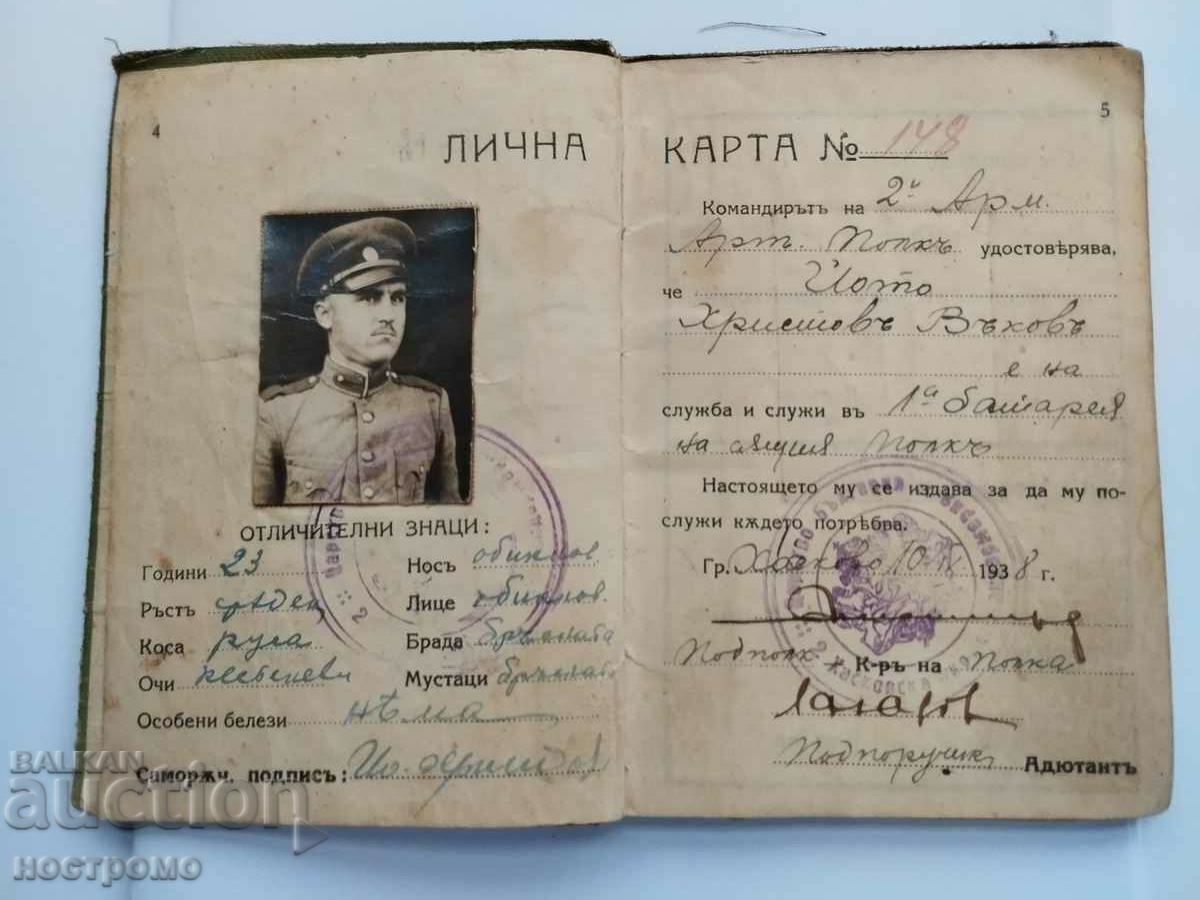 4
ЛИЧНА
ОТЛИЧИТЕЛНИ ЗНАЦИ:
Години 23
Ръстъ срѣденъ
Коса руса
Очи кестеневи
Особени белези нѣма
Носъ обикнов
Лице обикнов.
Брада бръсната
Мустаци бръснат
Саморѫч. подписъ:
5
КАРТА № 148
Командирътъ на 2й Арм.
Арт. Полкъ удостовѣрява,
че Йото
Христовъ Вълковъ
е на
служба и служи въ 1а батарея
на същия Полкъ
Настоящето му се издава за да му по-
служи кѫдето потрѣбва.
Гр. Хасково 10 1938 г.
Подполк. К-ръ на Полка
Лазаров
Подпоручик Адютантъ
BALKAN
auction
ностромо